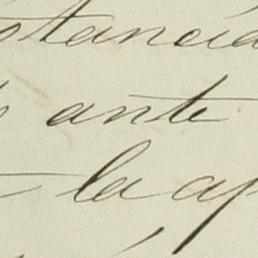 stancia
ante
la ap